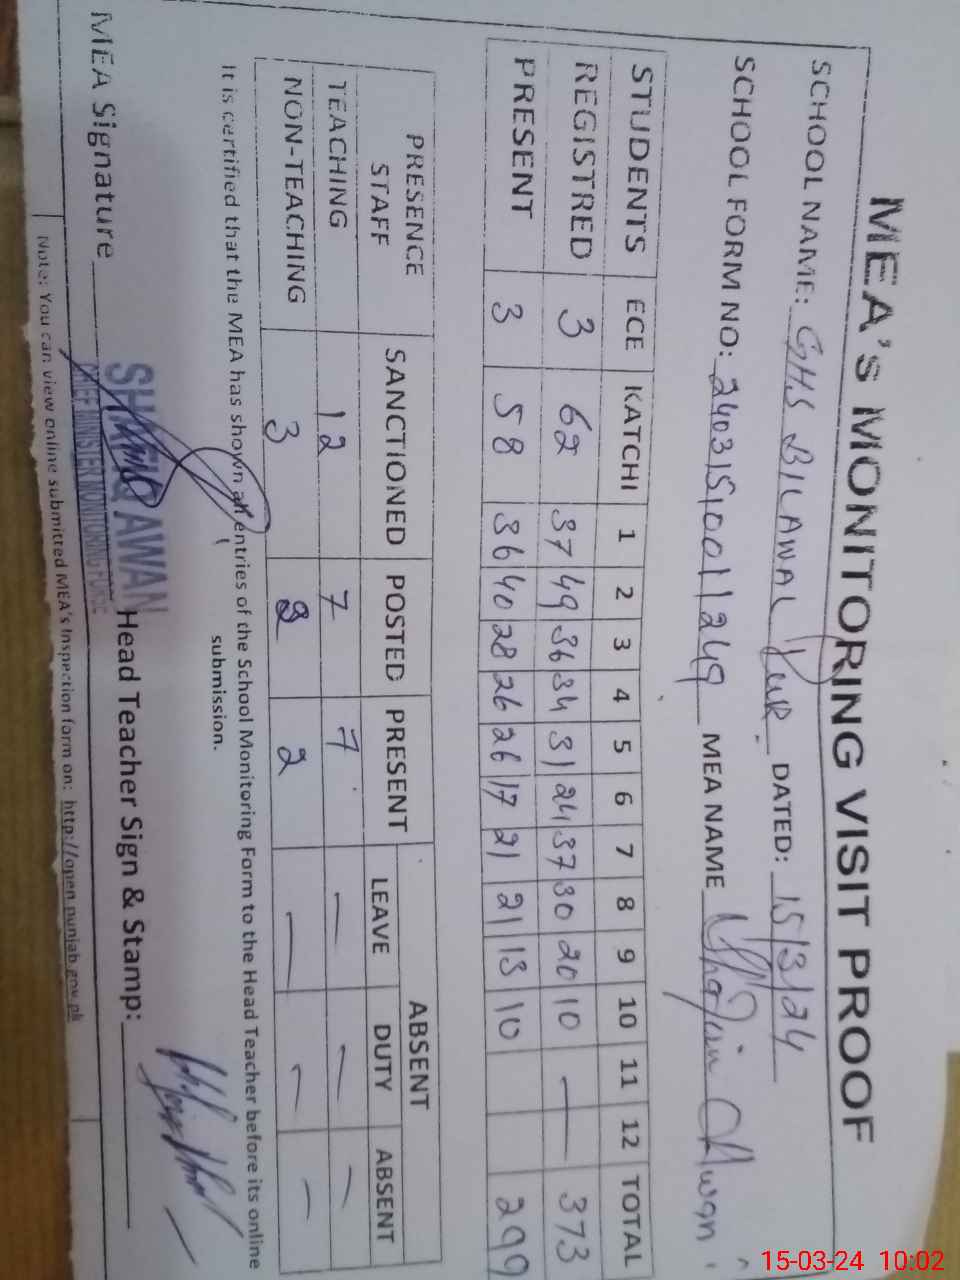 MEA's MONITORING VISIT PROOF
SCHOOL NAME: GHS BILAWAL DATED: 15/3/24
SCHOOL FORM NO: MEA NAME Awan
STUDENTS ECE KATCHI 1 2 3 4 5 6 7 8 9 10 11 12 TOTAL
REGISTRED 3 62 37 49 36 34 31 24 37 30 20 10 — — 373
PRESENT 3 58 36 40 28 26 26 17 21 21 13 10 299
PRESENCE STAFF SANCTIONED POSTED PRESENT ABSENT
LEAVE DUTY ABSENT
TEACHING 12 7 7 — — —
NON-TEACHING 3 2 2 — — —
It is certified that the MEA has shown all entries of the School Monitoring Form to the Head Teacher before its online
submission.
SHAFIQ AWAN
CHIEF MINISTER MONITORING FORCE
MEA Signature Head Teacher Sign & Stamp:
Note: You can view online submitted MEA's Inspection form on: http://open.punjab.gov.pk
15-03-24 10:02